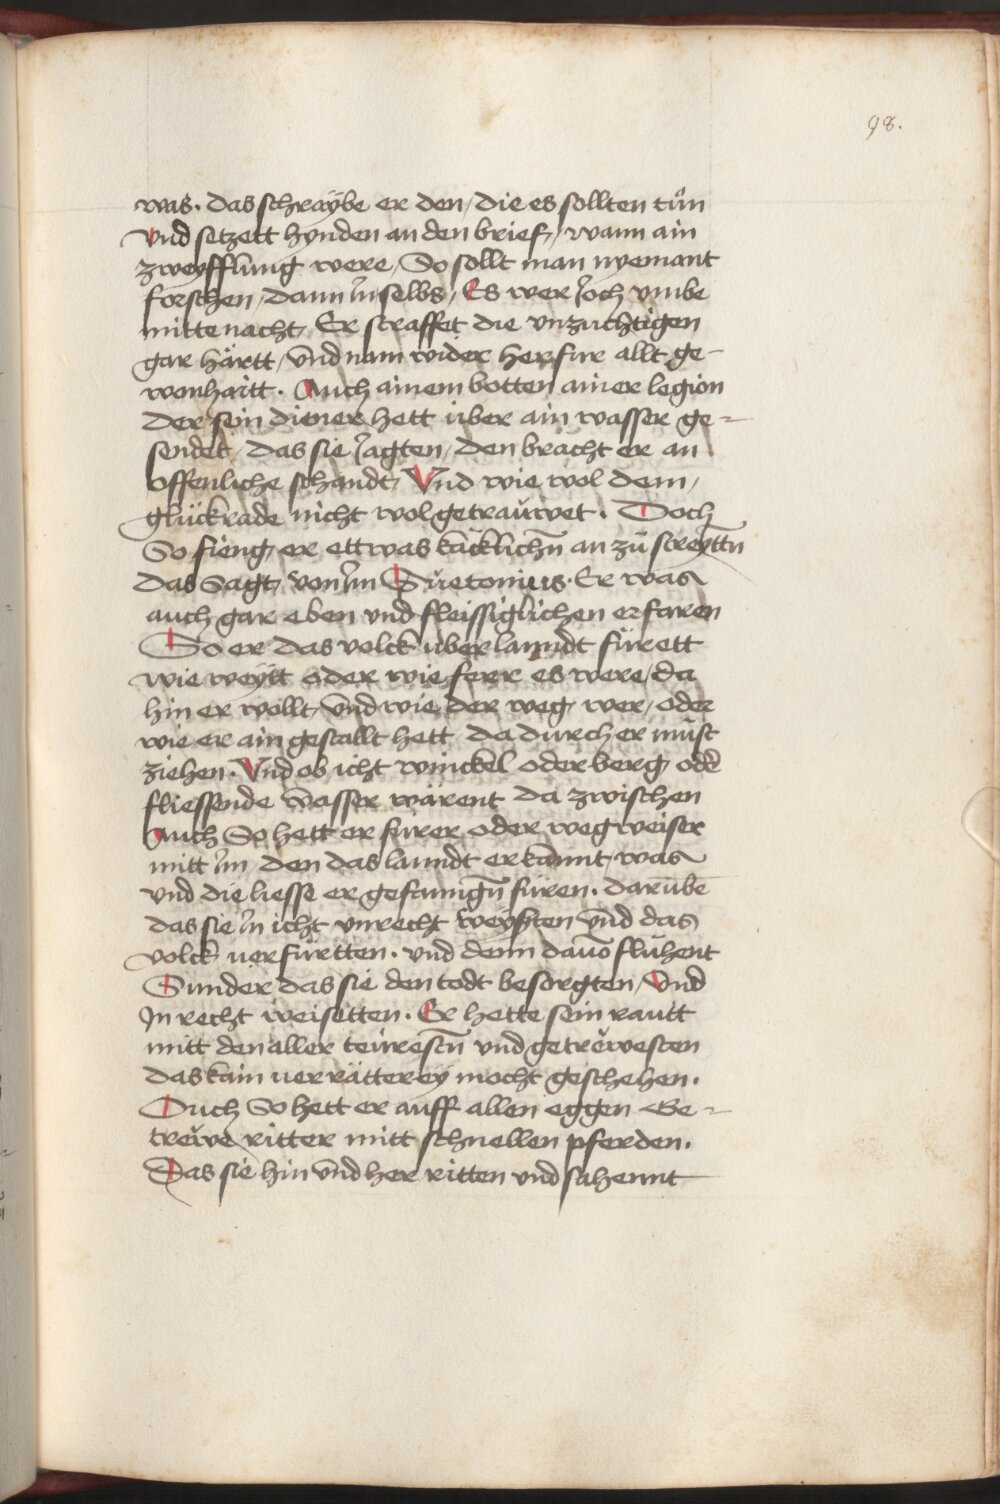 98.
was. das schraÿbe er den, die es sollten tůn
Vnd setzett hÿnden an den brief, wann ain
zweyfflung were, So sollt man nyemant
forschen, dann Inselbs, Es wer Joch vmbe
mittenacht, Er straffet die vnzuchtigen
gar härtt, vnd nam wider herfur allt ge-
wonhaitt. Auch ainem botten ainer legion
der sein diener hett über ain wasser ge-
sendet, das sie Jagten, den bracht er an
offenliche schandt, Vnd wie wol dem,
glückrade nicht wol getrauwet. Doch
So fieng, er ettwas käcklichñ an zů streyttñ
das sagt, von Im Suetonius. Er was
auch gar eben und fleissiglichen erfaren
So er das volck über lanndt fürett
wie weÿtt oder wie ferr es were, da
hin er wollt, vnd wie der weg, wer, oder
wie er ain gestallt hett da durch er müst
ziehen. Vnd ob icht winckel oder berg, odẽ
fliessende wasser wärent da zwischen
Auch So hett er fürer oder wegweiser
mitt Im den das lanndt erkannt, was
vnd die liesse er gefanngñ füren. darübẽ
das sie In icht vnrecht weÿsten vnd das
volck uerfürtten. vnd denn dauõ fluhent
Sunder das sie den todt besorgten, Vnd
In recht weisetten. Er hette sein rautt
mitt den aller teurestñ vnd getrëwesten
das kain uerrätterey mocht geschehen.
Ouch So hett er auff allen eggen Ge-
treüwe ritter mitt schnellen pferden.
Das sie hin vnd her ritten vnd sahennt